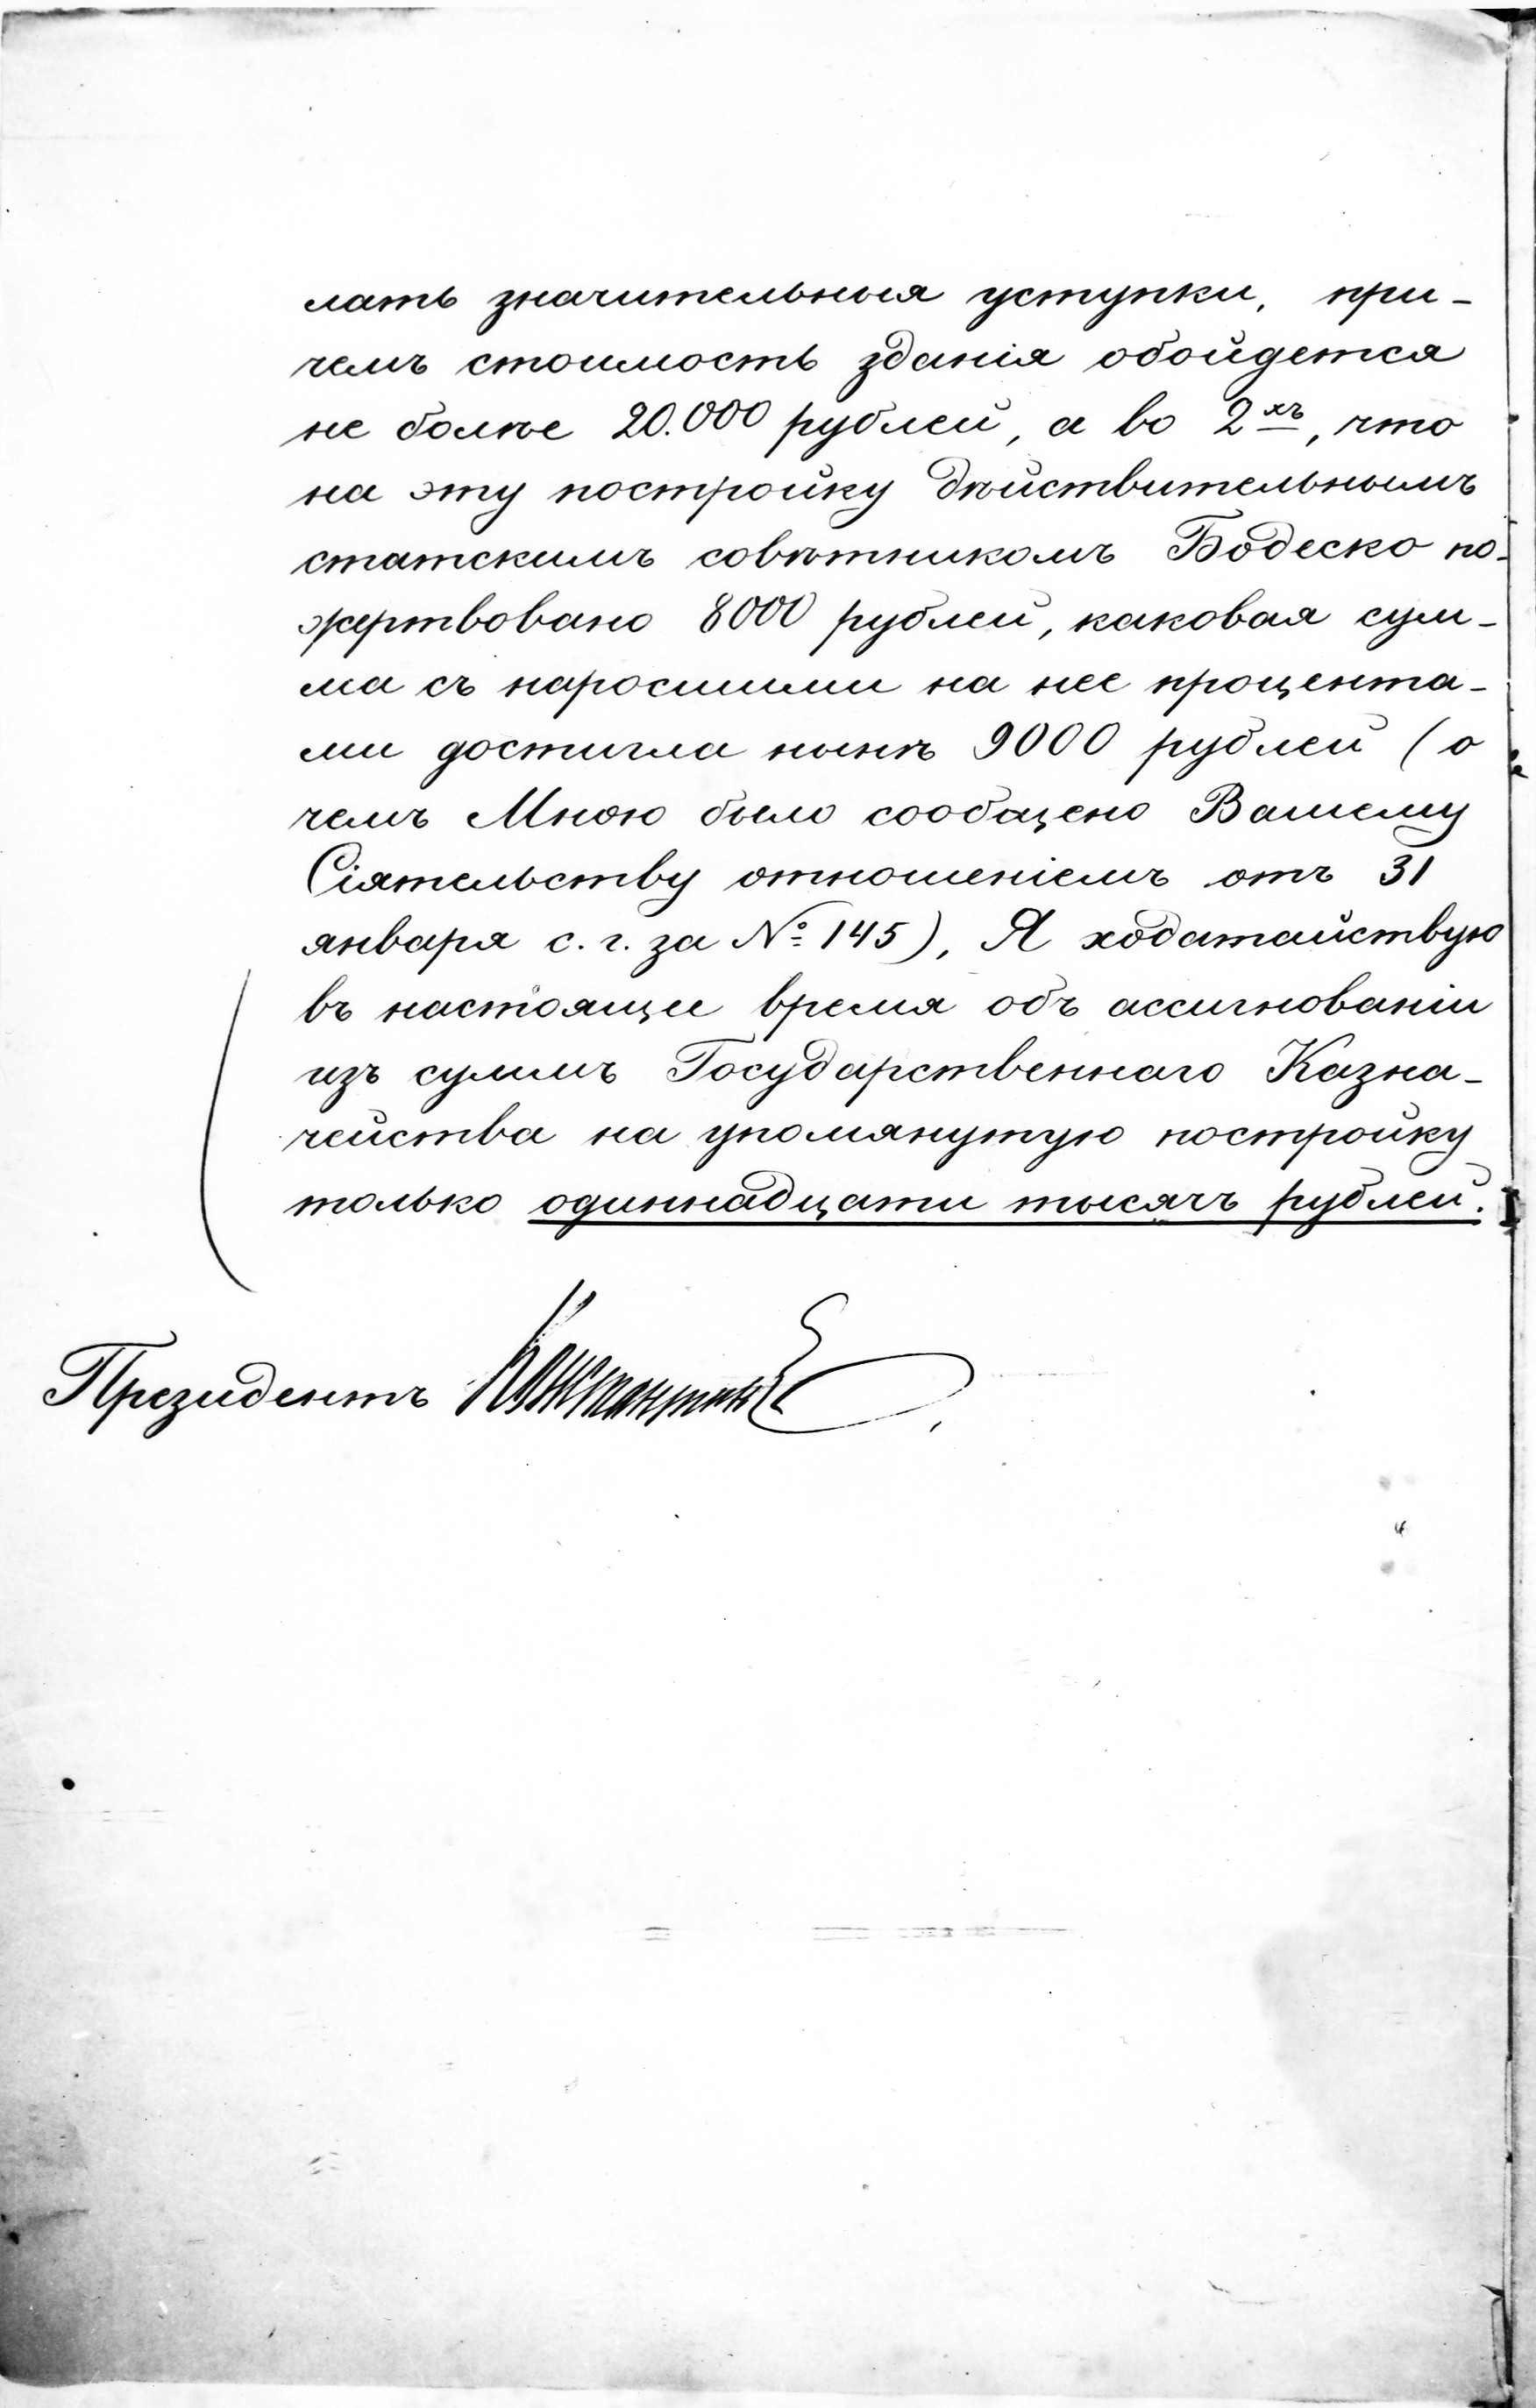 лать значительныя уступки, при-
чемъ стоимость зданія обойдется
не болѣе 20.000 рублей, а во 2хъ, что
на эту постройку дѣйствительнымъ
статскимъ совѣтникомъ Бодеско по-
жертвовано 8000 рублей, каковая сум-
ма съ наросшими на нее процента-
ми достигла нынѣ 9000 рублей (о
чемъ Мною было сообщено Вашему
Сіятельству отношеніемъ отъ 31
января с. г. за № 145), Я ходатайствую
въ настоящее время объ ассигнованіи
изъ суммъ Государственнаго Казна-
чейства на упомянутую постройку
только одиннадцати тысячъ рублей.
Президентъ Константинъ